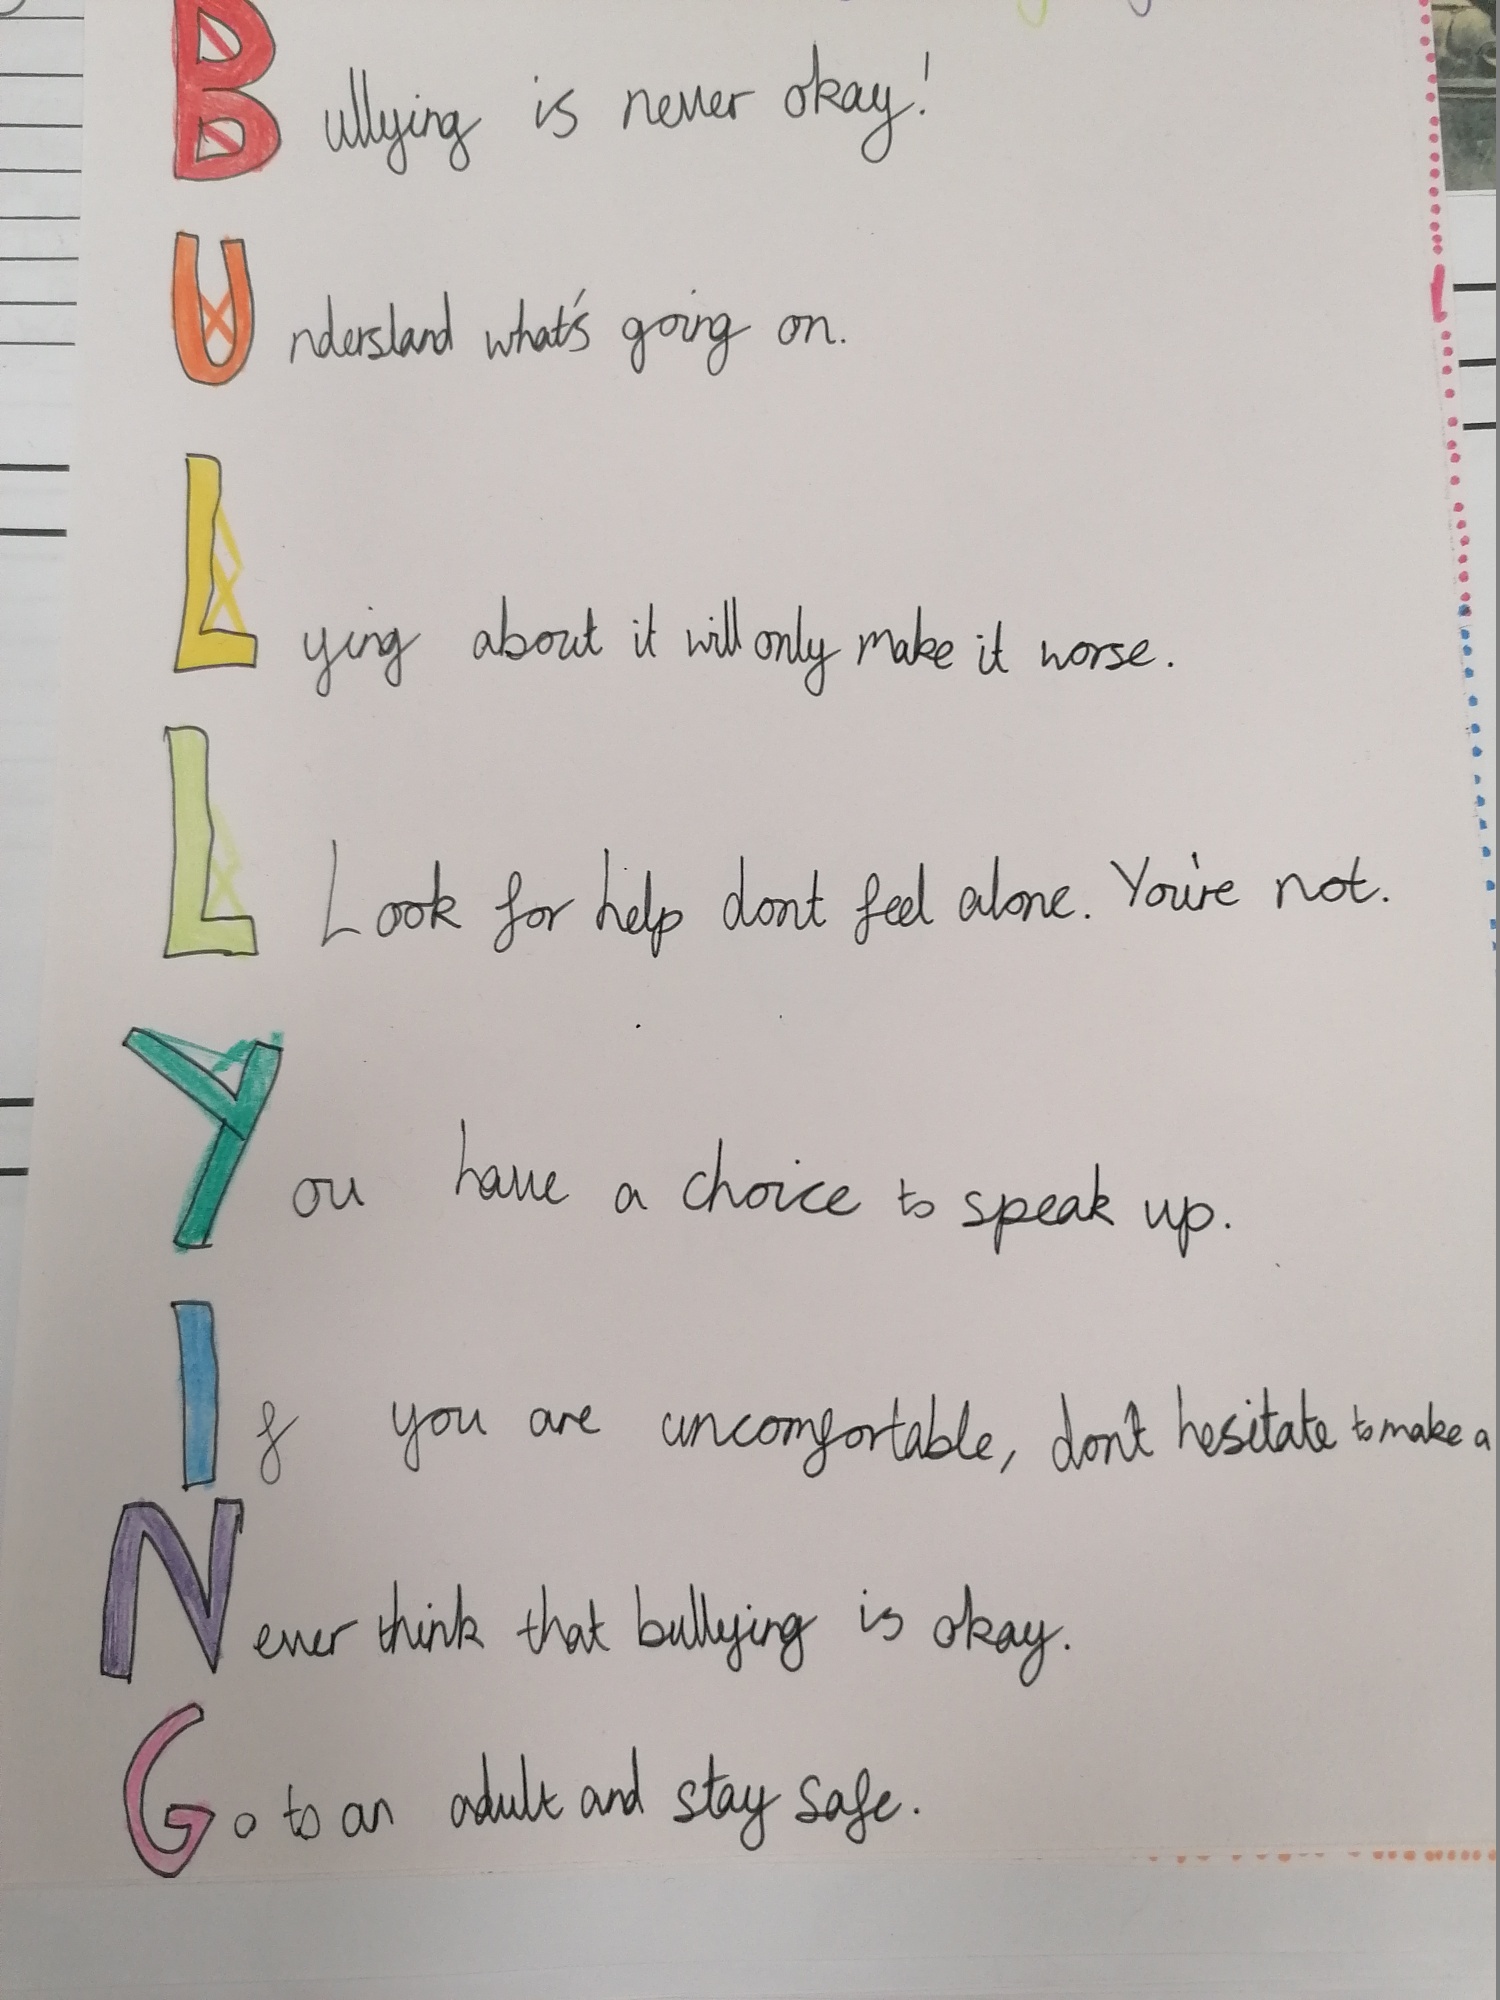 Bullying is never okay!
Understand what's going on.
Lying about it will only make it worse.
L Look for help dont feel alone. You're not.
You have a choice to speak up.
If you are uncomfortable, don't hesitate to make a
Never think that bullying is okay.
Go to an adult and stay safe.